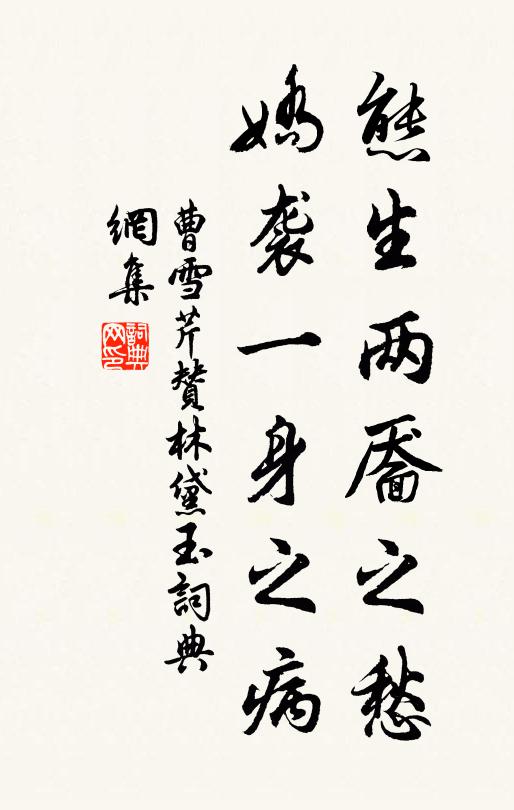 態生两靥之愁
嬌袭一身之病
曹雪芹贊林黛玉詞典
網集
詞典
网印